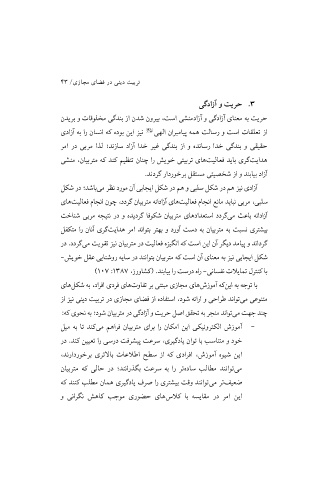 تربیت دینی در فضای مجازی/ ۴۳
۳. حریت و آزادگی
حریت به معنای آزادگی و آزادمنشی است، بیرون شدن از بندگی مخلوقات و بریدن
از تعلقات است و رسالت همه پیامبران الهی نیز این بوده که انسان را به آزادی
حقیقی و بندگی خدا رسانده و از بندگی غیر خدا آزاد سازند؛ لذا مربی در امر
هدایت‌گری باید فعالیت‌های تربیتی خویش را چنان تنظیم کند که متربیان، منشی
آزاد بیابند و از شخصیتی مستقل برخوردار گردند.
آزادی نیز هم در شکل سلبی و هم در شکل ایجابی آن مورد نظر می‌باشد؛ در شکل
سلبی، مربی نباید مانع انجام فعالیت‌های آزادانه متربیان گردد، چون انجام فعالیت‌های
آزادانه باعث می‌گردد استعدادهای متربیان شکوفا گردیده و در نتیجه مربی شناخت
بیشتری نسبت به متربیان به دست آورد و بهتر بتواند امر هدایت‌گری آنان را متکفل
گردد و پیامد دیگر آن این است که انگیزه فعالیت در متربیان نیز تقویت می‌گردد. در
شکل ایجابی نیز به معنای آن است که متربیان بتوانند در سایه روشنایی عقل خویش-
با کنترل تمایلات نفسانی- راه درست را بیابند. (کشاورز، ۱۳۸۷: ۱۰۷)
با توجه به این‌که آموزش‌های مجازی مبتنی بر تفاوت‌های فردی افراد، به شکل‌های
متنوعی می‌تواند طراحی و ارائه شود، استفاده از فضای مجازی در تربیت دینی نیز از
چند جهت می‌تواند منجر به تحقق اصل حریت و آزادگی در متربیان شود؛ به نحوی که:
- آموزش الکترونیکی این امکان را برای متربیان فراهم می‌کند تا به میل
خود و متناسب با توان یادگیری، سرعت پیشرفت درسی را تعیین کند. در
این شیوه آموزش، افرادی که از سطح اطلاعات بالاتری برخوردارند،
می‌توانند مطالب ساده‌تر را به سرعت بگذرانند؛ در حالی که متربیان
ضعیف‌تر می‌توانند وقت بیشتری را صرف یادگیری همان مطلب کنند که
این امر در مقایسه با کلاس‌های حضوری موجب کاهش نگرانی و